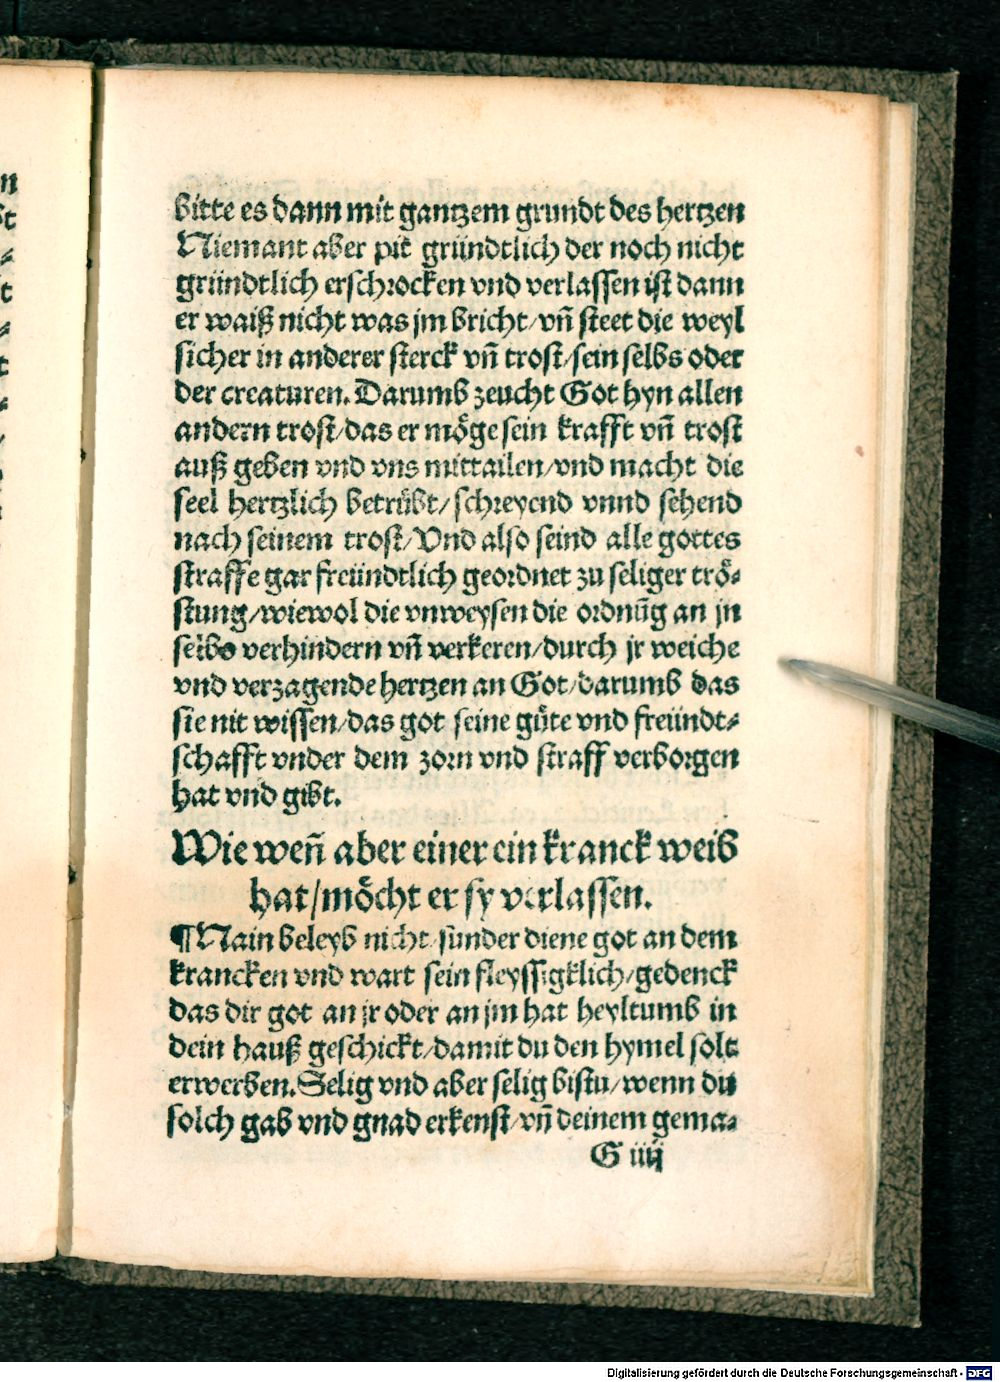 bitte es dann mit gantzem grundt des hertzen
Niemant aber pit gründtlich der noch nicht
gründtlich erschrocken vnd verlassen ist dann
er waiß nicht was jm bricht/vñ steet die weyl
sicher in anderer sterck vñ trost/sein selbs oder
der creaturen. Darumb zeucht Got hyn allen
andern trost/das er möge sein krafft vñ trost
auß geben vnd vns mittailen/vnd macht die
seel hertzlich betrübt/schreyend vnnd sehend
nach seinem trost/Vnd also seind alle gottes
straffe gar freündtlich geordnet zu seliger trö-
stung/wiewol die vnweysen die ordnũg an jn
selbs verhindern vñ verkeren/durch jr weiche
vnd verzagende hertzen an Got/darumb das
sie nit wissen/das got seine güte vnd freündt-
schafft vnder dem zorn vnd straff verborgen
hat vnd gibt.
Wie weñ aber einer ein kranck weib
hat/möcht er sy verlassen.
¶Nain beleyb nicht/sunder diene got an dem
krancken vnd wart sein fleyssigklich/gedenck
das dir got an jr oder an jm hat heyltumb in
dein hauß geschickt/damit du den hymel solt
erwerben. Selig vnd aber selig bistu/wenn du
solch gab vnd gnad erkenst/vñ deinem gema-
G iiij
Digitalisierung gefördert durch die Deutsche Forschungsgemeinschaft - DFG